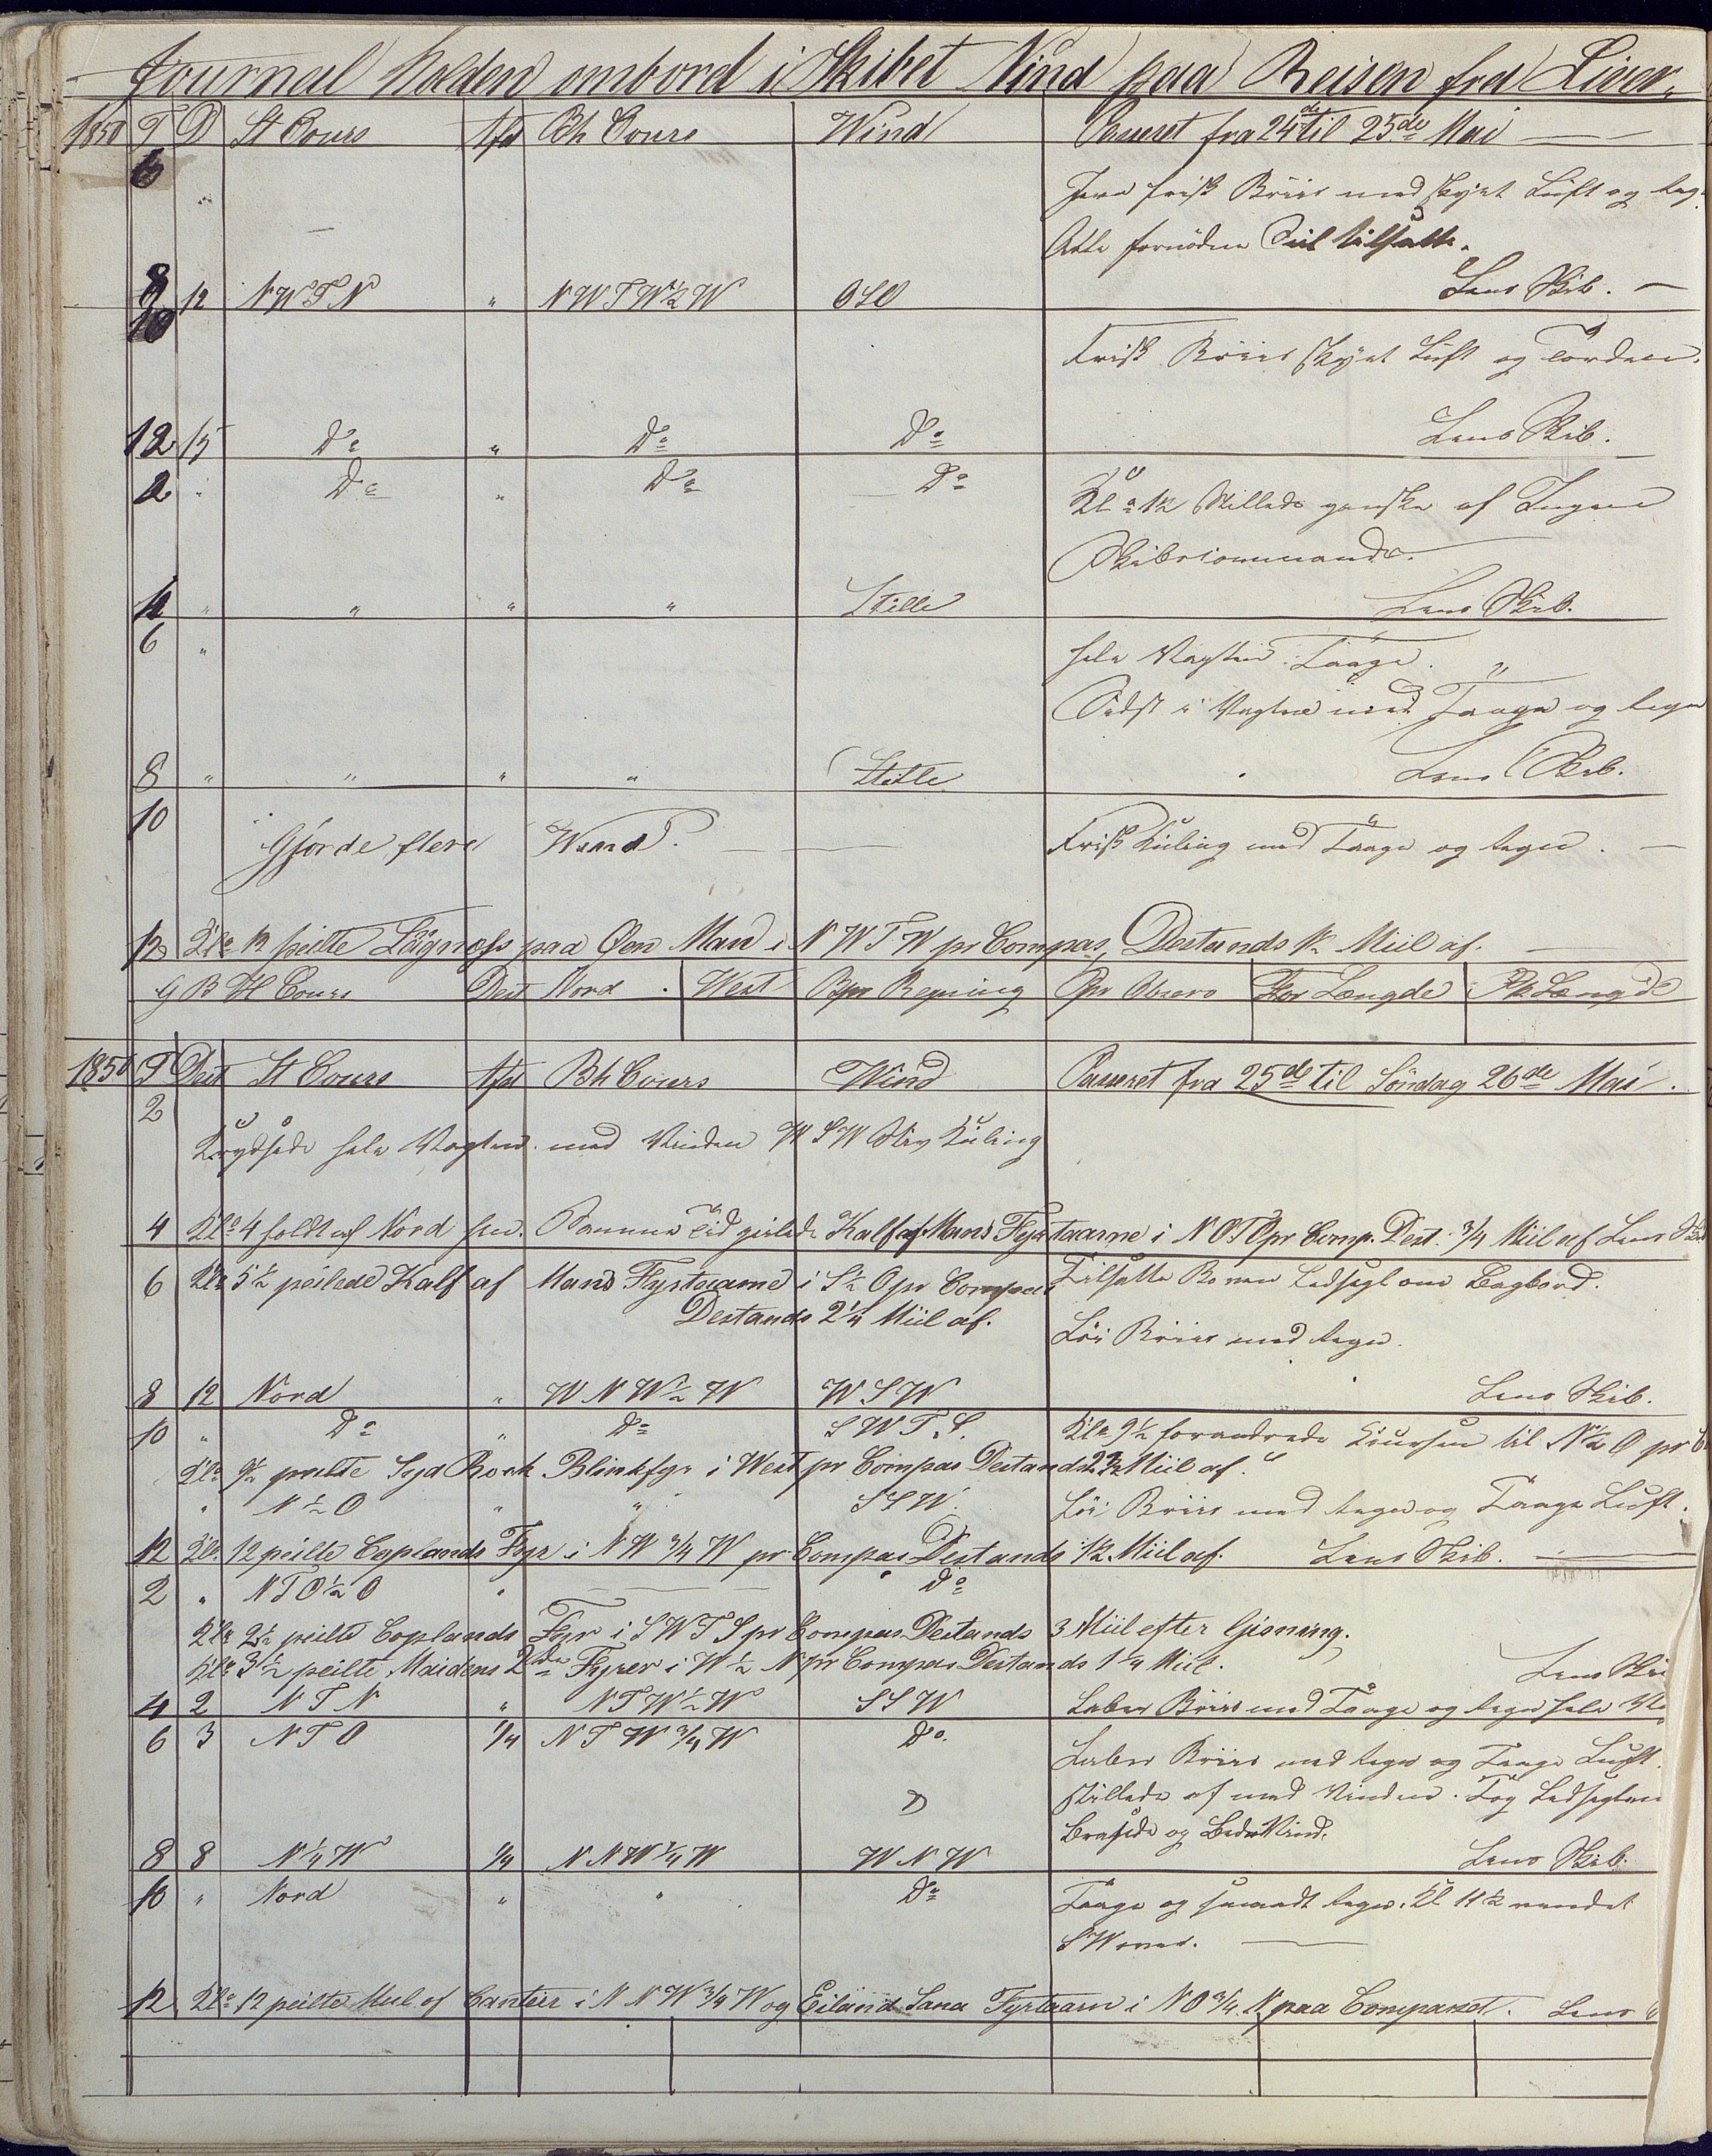 Journal holden ombord i Skibet Nind paa Reisen fra Liver.
1850 T D St Cours Afd Bh Cours Wind Passeret fra 24de til 25de Mai
6 " Jevn frisk Briis med skyet Luft og Regn
Alle fornødne Seil tilsatte.
8 12 NWTN " NWTW½W OSO Lens Skib.
10
Frisk Briis skyet Luft og Torden.
12 15 Do " Do Do Lens Skib.
2 " Do " Do Do Klo 1½ Stillede ganske af Ingen
Skibscommando.
4 " " " " Stille Lens Skib.
6 " hele Vagten Taage. "
Sidst i Vagten med Taage og Regn
8 " " " " Stille Lens Skib.
10 Gjorde flere Vend. Frisk Kuling med Taage og Regn.
12 Klo 12 peilte paa Øen Man i NWTW pr Compas, Destands ½ Miil af.
G B H Cours Dest Nord West Bpr Regning Opr Observ For Længde Pk Længde
1850 T Dest St Cours Afd Bh Cours Wind Passeret fra 25de til Søndag 26de Mai.
2
Krydsede hele Vagten med Vinden WSW Stiv Kuling
4 Klo 4 holdt af Nord hen. Samme Tid peilede Kalf af Mans Fyrtaarne i NOTO pr Comp. Dest: 3/4 Miil af Lens Skib
6 Klo 5½ peilede Kalf af Mans Fyrtaarne i S½O pr Compas Tilsatte Boven Ledsegl om Bagbord.
Destands 2¼ Miil af.
Löi Briis med Regn.
8 12 Nord " WNW½W WSW Lens Skib.
10 " Do " Do SWTS. Klo 9½ forandrede Coursen til N½O pr
Klo 9½ peilte Syd Rock Blinkfyr i West pr Compas Destands 2½ Miil af.
" N½O " " SSW. Löi Briis med Regn og Taage Luft.
12 Klo 12 peilte Coplands Fyr i NW¾W pr Compas Destands 1½ Miil af. Lens Skib.
2 " NTO½O " Do
Klo 2½ peilte Coplands Fyr i SWTS pr Compas Destands 3 Miil efter Gisning.
Klo 3½ peilte Maidens 2de Fyrer i W½N pr Compas Destands 1¼ Miil. Lens Ski
4 2 NTN " NTW½W SSW Laber Briis med Taage og Regn hele
6 3 NTO 1/4 NTW¾W Do.
Laber Briis med Regn og Taage Luft.
stillede af med Vinden. Tog Ledseglene
Brasede og Bidevind.
8 8 N¼W 1/4 NNW¼W WNW Lens Skib.
10 " Nord " " Do Taage og Regn. Kl 11½ vendet
SW over.
12 Klo 12 peilte Mul of Cantier i NNW¾W og Eiland Sana Fyrtaarn i NO¾N paa Compasset. Lens